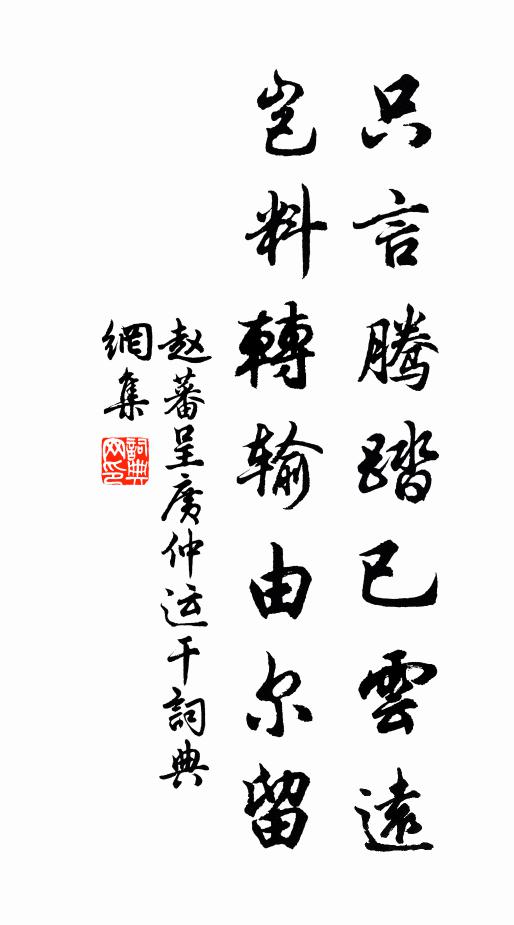 只言騰踏已雲遠
豈料轉輸由尔留
赵蕃呈广仲运干詞典
網集
詞典
网印